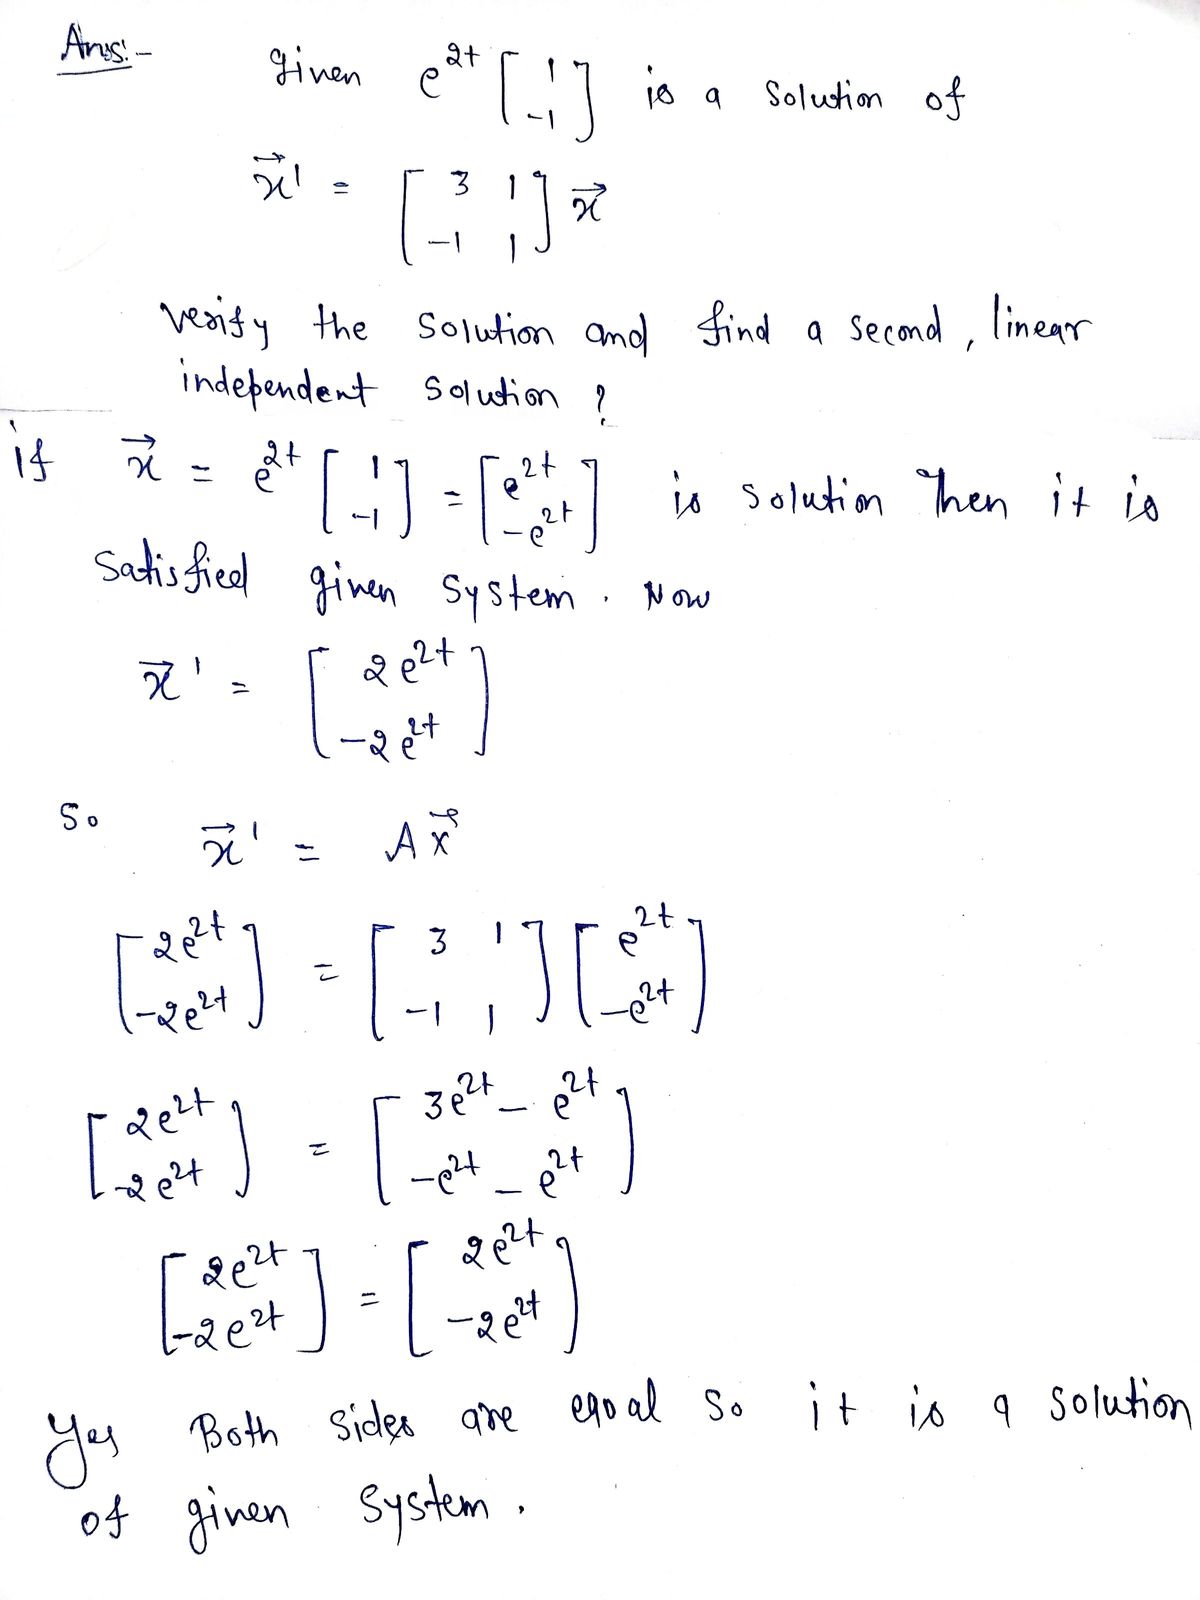 Ans:- given e^{2t} [1; -1] is a solution of
x⃗' = [3 1; -1 1] x⃗
verify the solution and find a second, linear
independent solution ?
if x⃗ = e^{2t} [1; -1] = [e^{2t}; -e^{2t}] is solution Then it is
Satisfied given system. Now
x⃗' = [2e^{2t}; -2e^{2t}]
So
x⃗' = A x⃗
[2e^{2t}; -2e^{2t}] = [3 1; -1 1] [e^{2t}; -e^{2t}]
[2e^{2t}; -2e^{2t}] = [3e^{2t} - e^{2t}; -e^{2t} - e^{2t}]
[2e^{2t}; -2e^{2t}] = [2e^{2t}; -2e^{2t}]
Yes Both sides are eqoal So it is a solution
of given system.